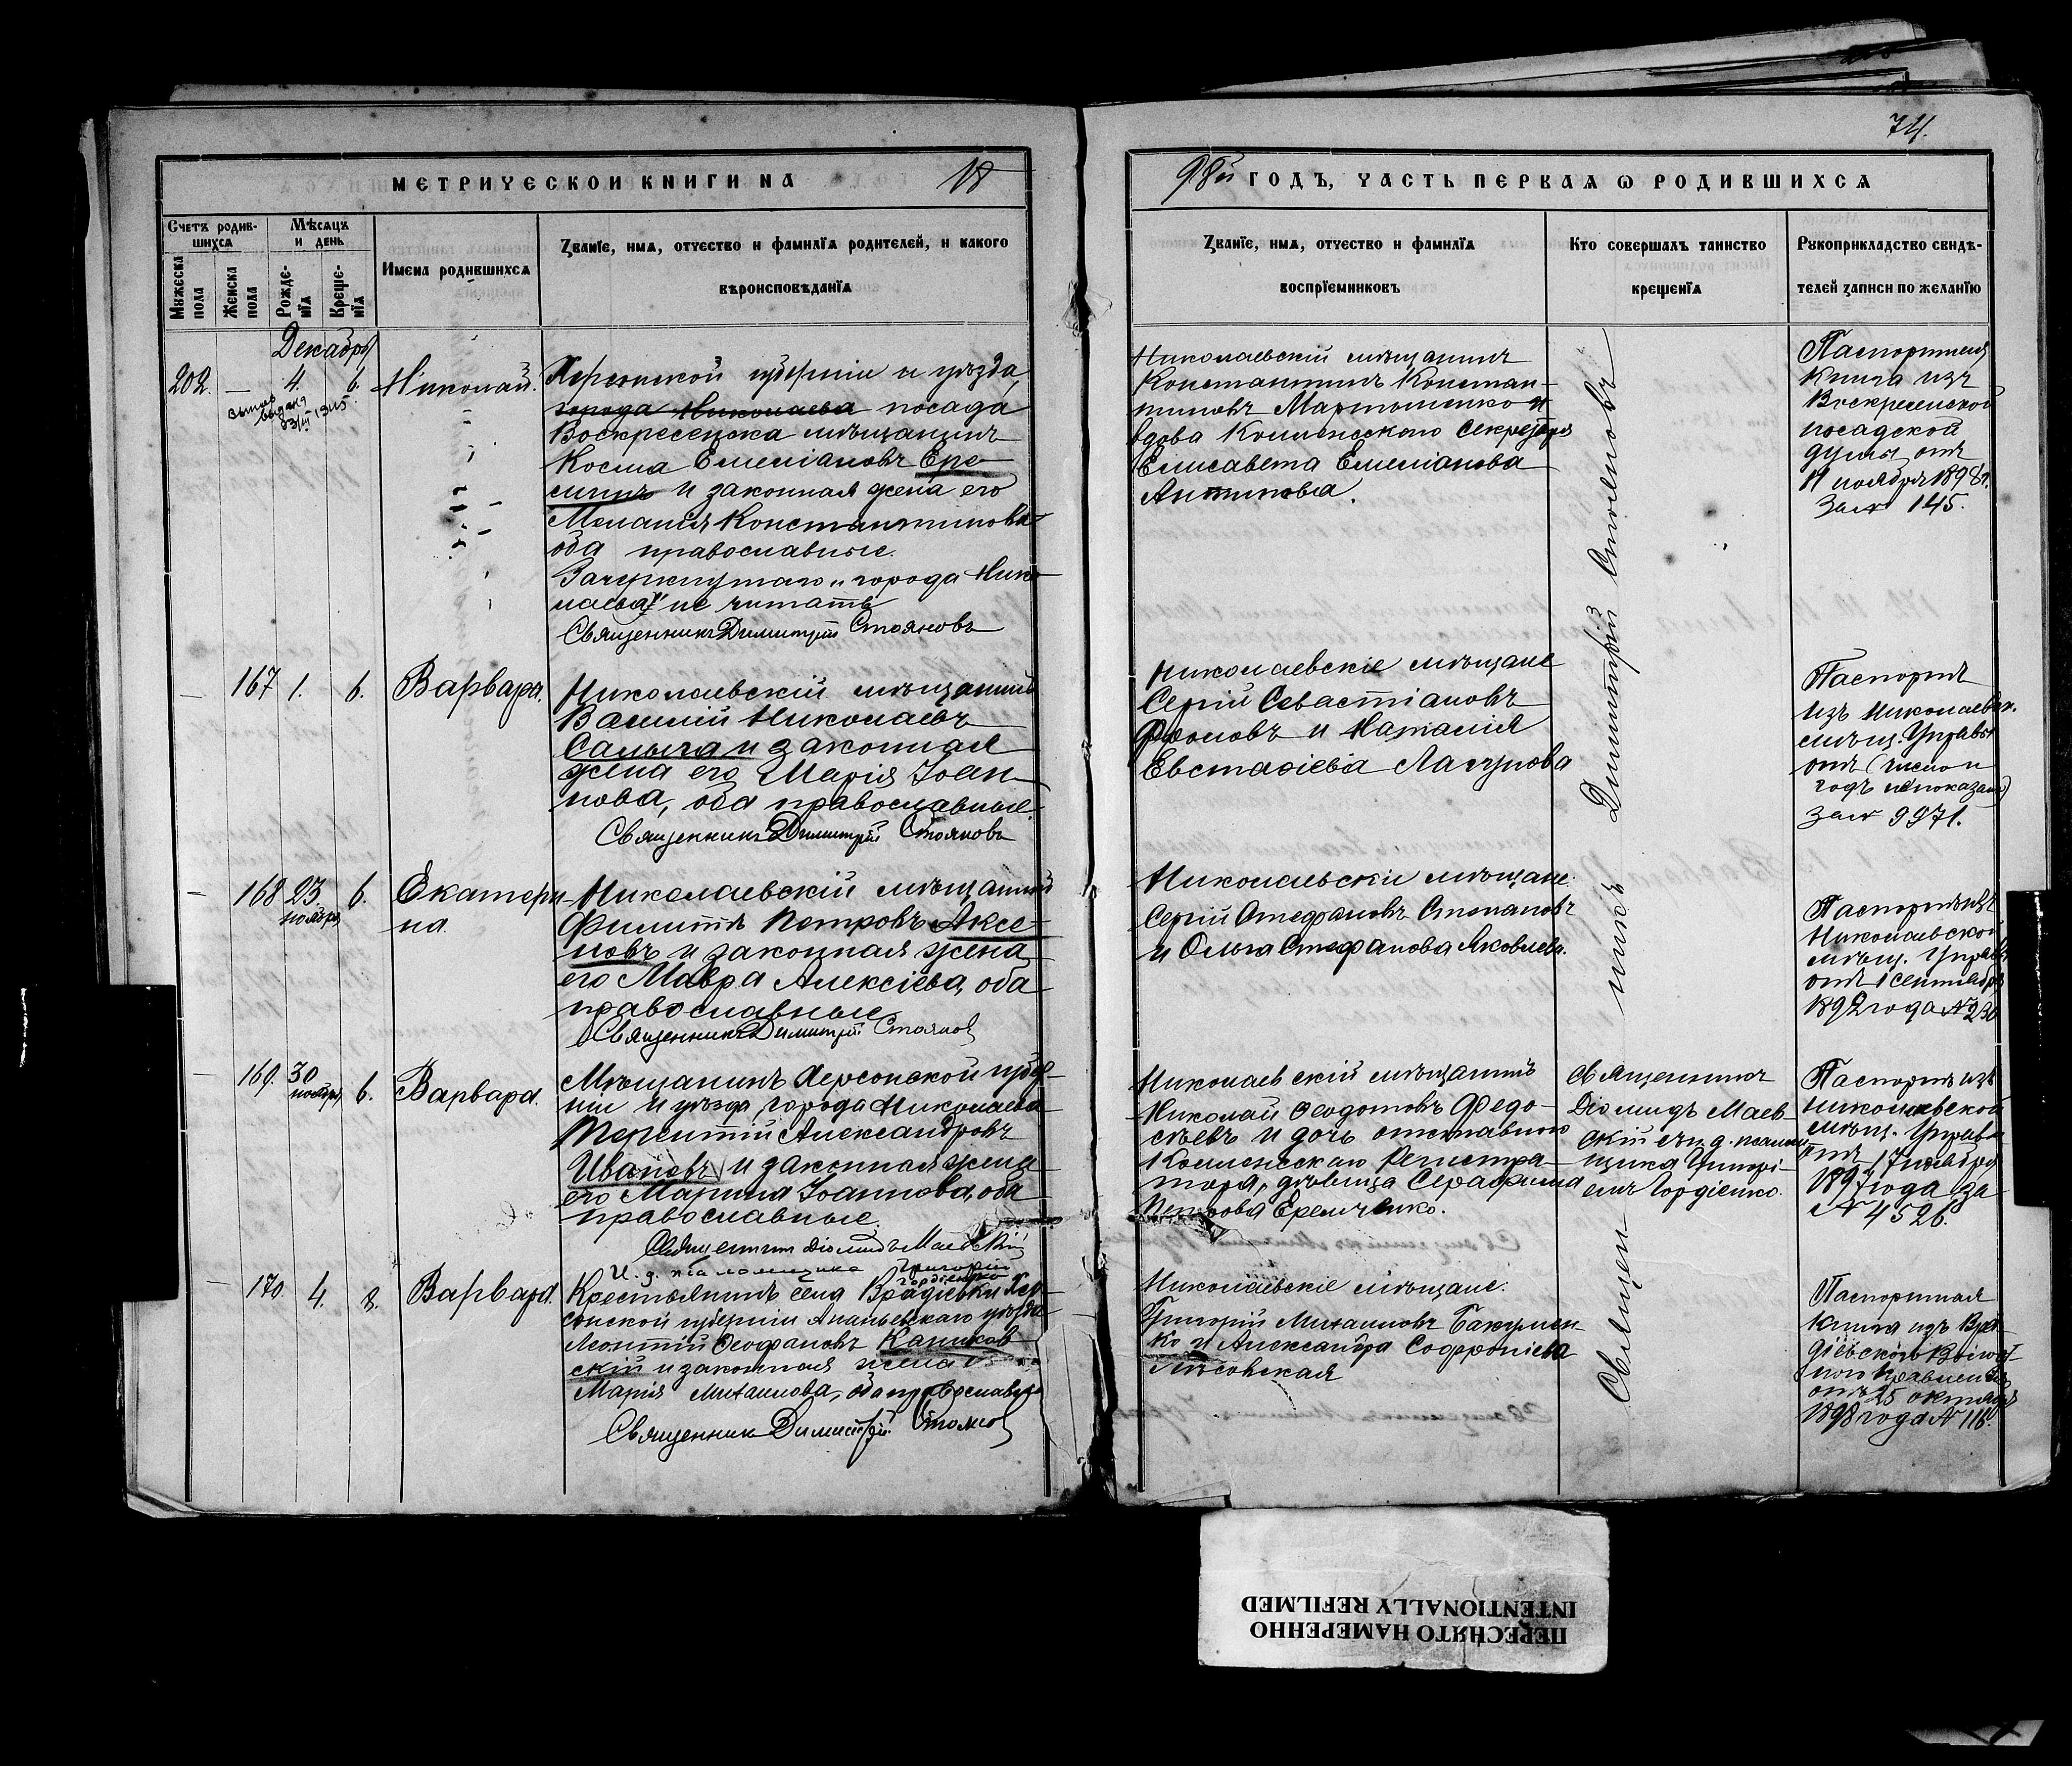 74.
МЕТРИЧЕСКОЙ КНИГИ НА 18
98й ГОДЪ, ЧАСТЬ ПЕРВАЯ О РОДИВШИХСЯ
Счетъ родив-
шихся
Мѣсяцъ
и день
Мужеска
пола
Женска
пола
Рожде-
нія
Креще-
нія
Имена родившихся
Званіе, имя, отчество и фамилія родителей, и какого
вѣроисповѣданія
Званіе, имя, отчество и фамилія
воспріемниковъ
Кто совершалъ таинство
крещенія
Рукоприкладство свидѣ-
телей записи по желанію
Декабрь
202. — 4. 6. Николай.
выдана
1915
Херсонской губерніи и уѣзда,
города Николаева посада
Воскресенска мѣщанинъ
Косма Емеліановъ Ере-
минъ и законная жена его
Меланія Константинова
оба православные.
Зачеркнутаго „города Нико-
лаева" не читать
Священникъ Димитрій Стояновъ
Николаевскій мѣщанинъ
Константинъ Констан-
тиновъ Мартыненко и
вдова Коллежскаго Секретаря
Елисавета Емеліанова
Антипова.
Паспортная
книга изъ
Воскресенской
посадской
думы отъ
19 ноября 1898 г.
за № 145.
— 167 1. 6. Варвара.
Николаевскій мѣщанинъ
Василій Николаевъ
Салыга и законная
жена его Марія Іоан-
нова, оба православные.
Священникъ Димитрій Стояновъ
Николаевскіе мѣщане
Сергій Севастіановъ
и Наталія
Евстафіева
Паспортъ
изъ Николаевск.
мѣщ. Управы
отъ (число и
годъ не показаны)
за № 9971.
— 168 23. 6. Екатери-
ноября
на.
Николаевскій мѣщанинъ
Филиппъ Петровъ Аксе-
новъ и законная жена
его Мавра Алексіева, оба
православные
Священникъ Димитрій Стоянов
Николаевскіе мѣщане:
Сергій Стефановъ Степановъ
и Ольга Стефанова Яковлева.
Паспортъ изъ
Николаевской
мѣщ. Управы
отъ 1 сентября
1892 года № 230
— 169. 30 6. Варвара.
ноября
Мѣщанинъ Херсонской губер-
ніи и уѣзда, города Николаева
Терентій Александровъ
Ивановъ и законная жена
его Марина Іоаннова, оба
православные.
Священникъ Діомидъ Маевскій
И. д. псаломщика Григорій
Гордіенко
Николаевскій мѣщанинъ
Николай Ѳеодотовъ Федо-
сѣевъ и дочь отставного
Коллежскаго Регистра-
тора, дѣвица Серафима
Петрова Еремченко.
Священникъ
Діомидъ Маев-
скій съ и. д. псалом-
щика Григорі-
емъ Гордіенко.
Паспортъ изъ
Николаевской
мѣщ. Управы
отъ 17 ноября
1897 года за
№ 4526.
— 170. 4. 8. Варвара.
Крестьянинъ села Врадіевки Хер-
сонской губерніи Ананьевскаго уѣзда
Леонтій Ѳеофановъ Каников-
скій и законная жена его
Марія Михаилова, оба православные
Священник Димитрій Стоянов
Николаевскіе мѣщане:
Григорій Михаиловъ Бакумен-
ко и Александра Софроніева
Лѣсовская
Паспортная
книга изъ Вра-
діевскаго Волост-
ного Правленія
отъ 25 октября
1898 года № 116.
Священникъ Димитрій Стояновъ
ПЕРЕСНЯТО НАМЕРЕННО
INTENTIONALLY REFILMED